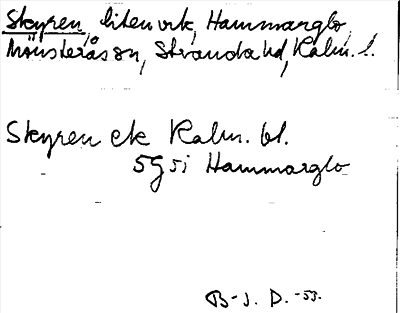 Skyren, liten vik, Hammarglo,
Mönsterås sn, Stranda hd, Kalm. l.
Skyren ek Kalm. bl.
5G5i Hammarglo
B-J. D. -53.